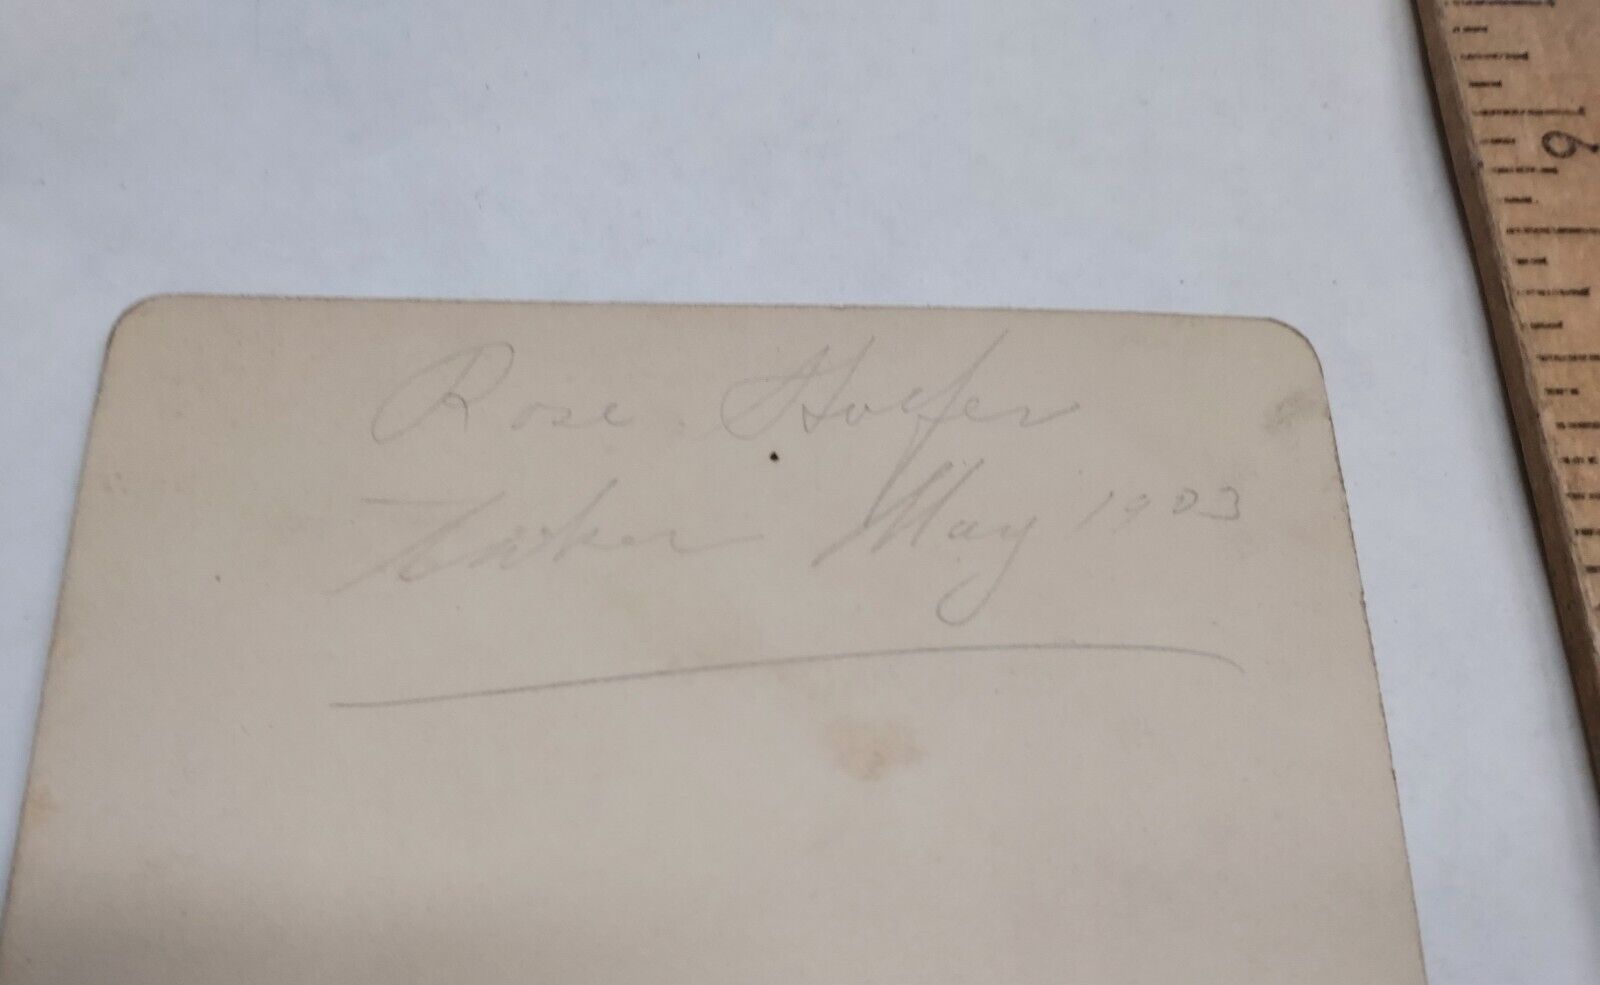 Rose Hoefer
Taken May 1903
6